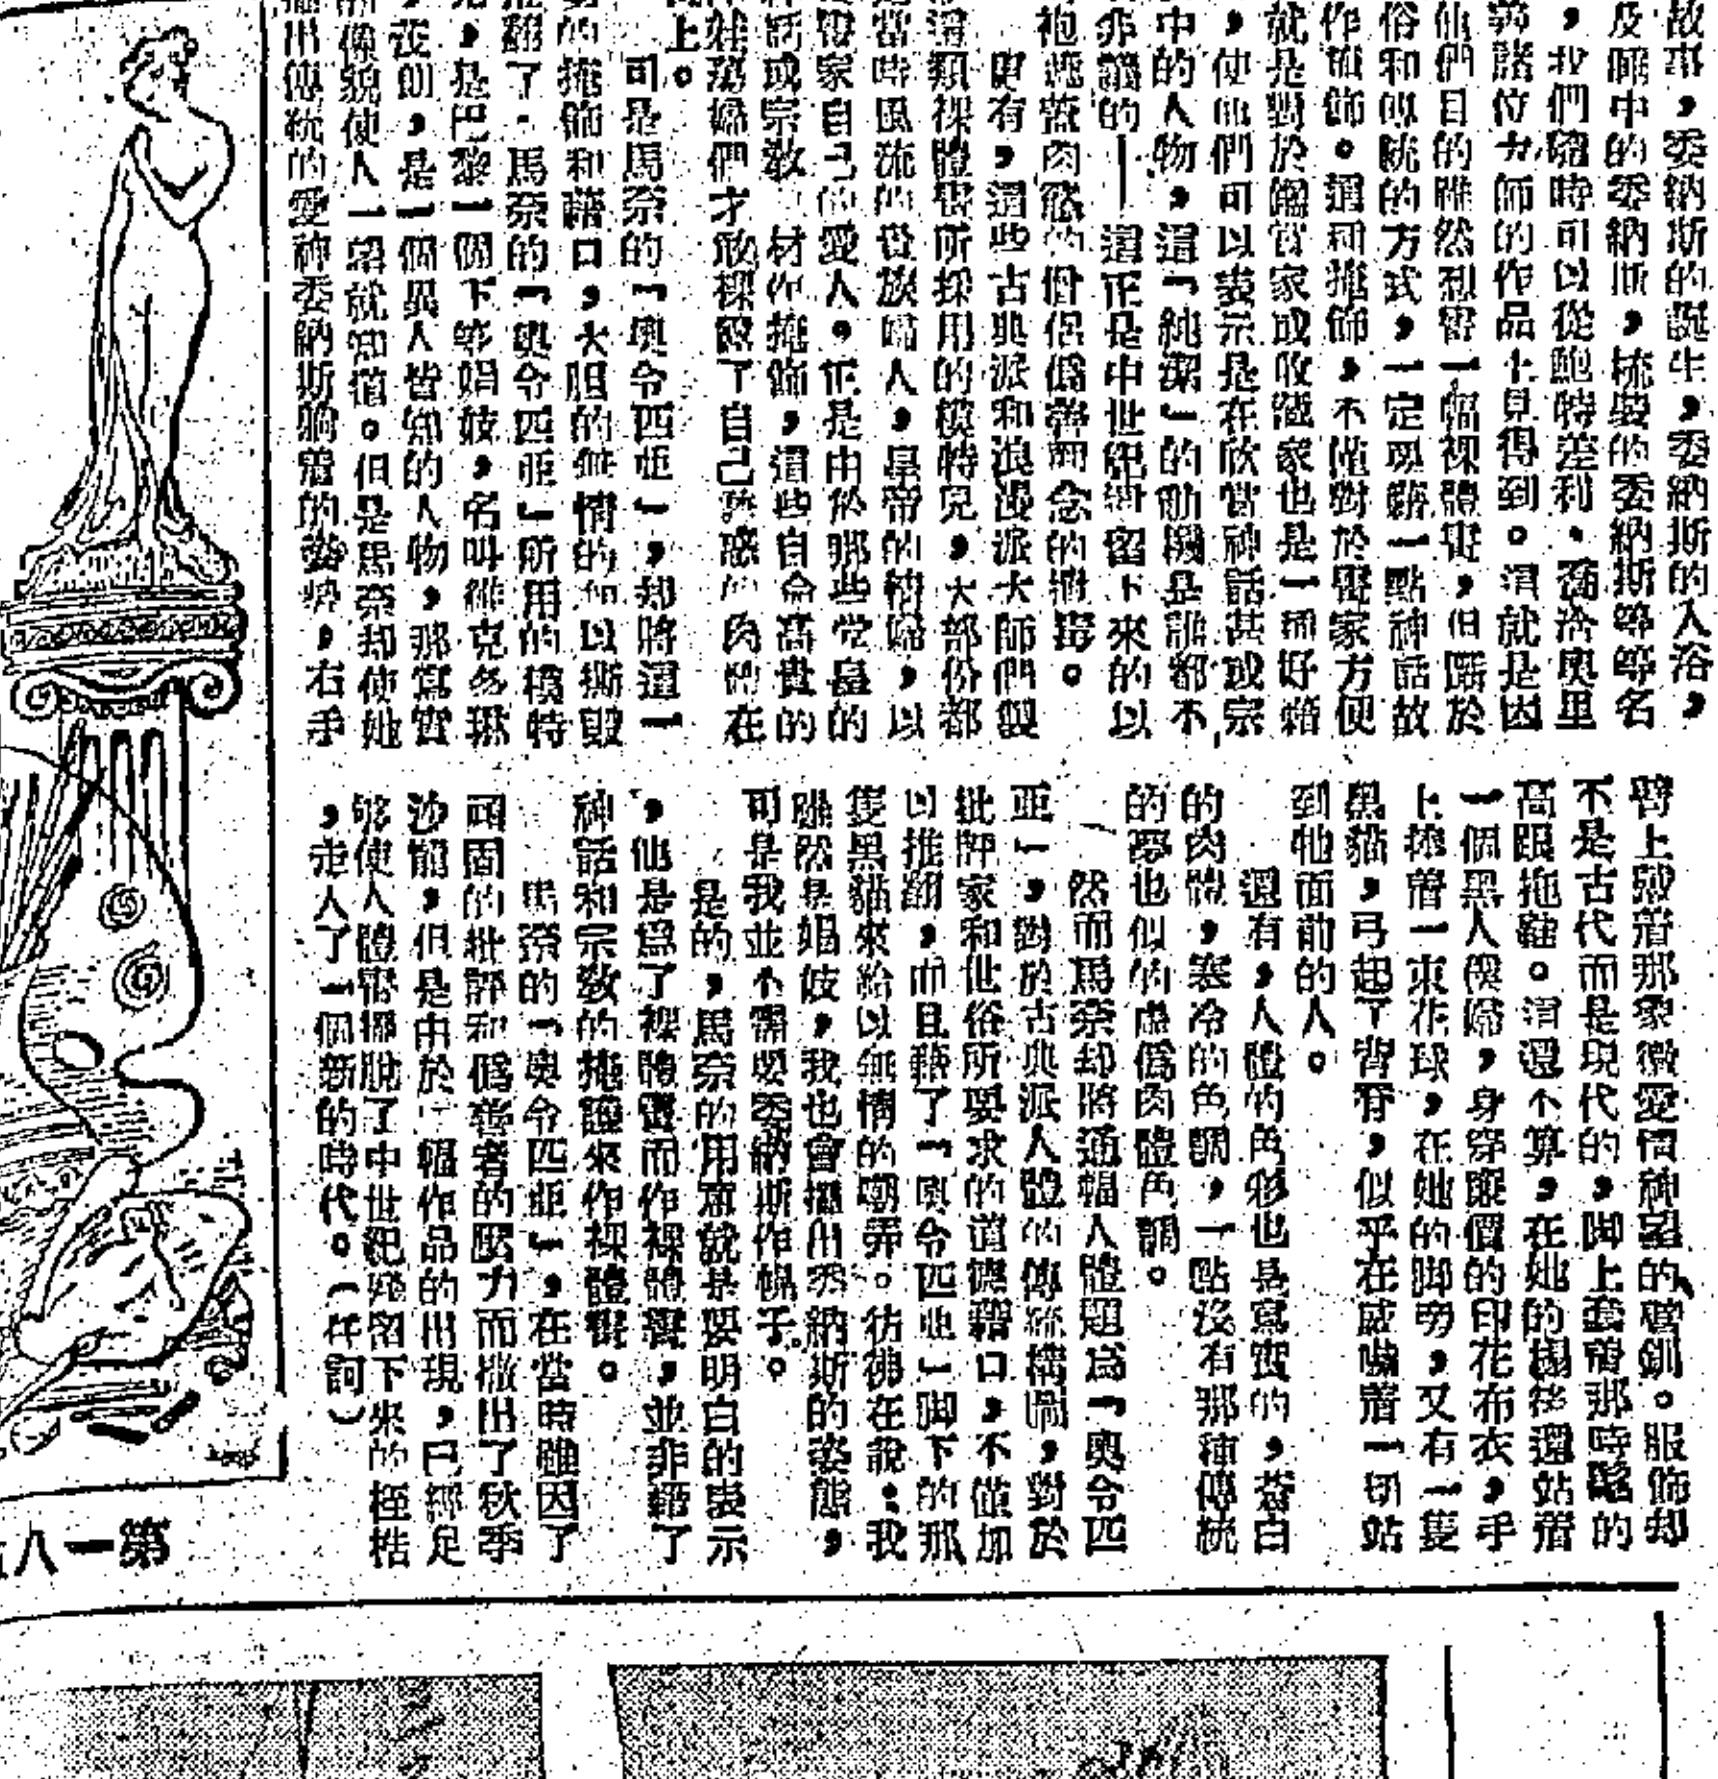 故事，委納斯的誕生，委納斯的入浴，
及睡中的委納斯，梳裝的委納斯等等名
，我們隨時可以從鮑特差利・喬治奧里
諸位大師的作品上見得到。這就是因
他們目的雖然想畫一幅裸體畫，但礙於
俗和傳統的方式，一定要藉一點神話故
作掩飾。這種掩飾，不僅對於畫家方便
就是對於鑑賞家或收藏家也是一種好藉
，使他們可以表示是在欣賞神話甚或宗
中的人物，這「純潔」的動機是誰都不
非議的——這正是中世紀遺留下來的以
袍遮蓋肉慾的僧侶僞善觀念的遺毒。
更有，這些古典派和浪漫派大師們製
這類裸體畫所採用的模特兒，大部份都
是當時風流的貴族婦人，皇帝的情婦，以
畫家自己的愛人。正是由於那些堂皇的
神話或宗教　材作掩飾，這些自命高貴的
蕩婦們才敢裸露了自己誘惑的肉體在
上。
可是馬奈的「奧令匹亞」，却將這一
的掩飾和藉口，大胆的無情的加以撕毀
推翻了・馬奈的「奧令匹亞」所用的模特
，是巴黎一個下等娼妓，名叫維克多琳
，是一個異人皆知的人物，那寫實
的像貌使人一望就知道。但是馬奈却使她
描出傳統的愛神委納斯躺着的姿勢，右手
臂上戴着那象徵愛情神聖的臂釧。服飾却
不是古代而是現代的，脚上套着那時髦的
高跟拖鞋。這還不算，在她的榻後還站着
一個黑人僕婦，身穿廉價的印花布衣，手
上捧着一束花球，在她的脚旁，又有一隻
黑貓，弓起了背脊，似乎在威嚇着一切站
到牠面前的人。
還有，人體的色彩也是寫實的，蒼白
的肉體，寒冷的色調，一點沒有那種傳統
的夢也似的虛僞肉體色調。
然而馬奈却將這幅人體題爲「奧令匹
亞」，對於古典派人體的傳統構圖，對於
批評家和世俗所要求的道德藉口，不僅加
以推翻，而且藉了「奧令匹亞」脚下的那
隻黑貓來給以無情的嘲弄。彷彿在說：我
雖然是娼妓，我也會擺出委納斯的姿態，
可是我並不需要委納斯作幌子。
是的，馬奈的用意就是要明白的表示
，他是爲了裸體畫而作裸體畫，並非藉了
神話和宗敎的掩護來作裸體畫。
馬奈的「奧令匹亞」，在當時雖因了
頑固的批評和僞善者的壓力而撤出了秋季
沙龍，但是由於這幅作品的出現，已經足
够使人體畫擺脫了中世紀殘留下來的桎梏
，走入了一個新的時代。（任訶）
第一八